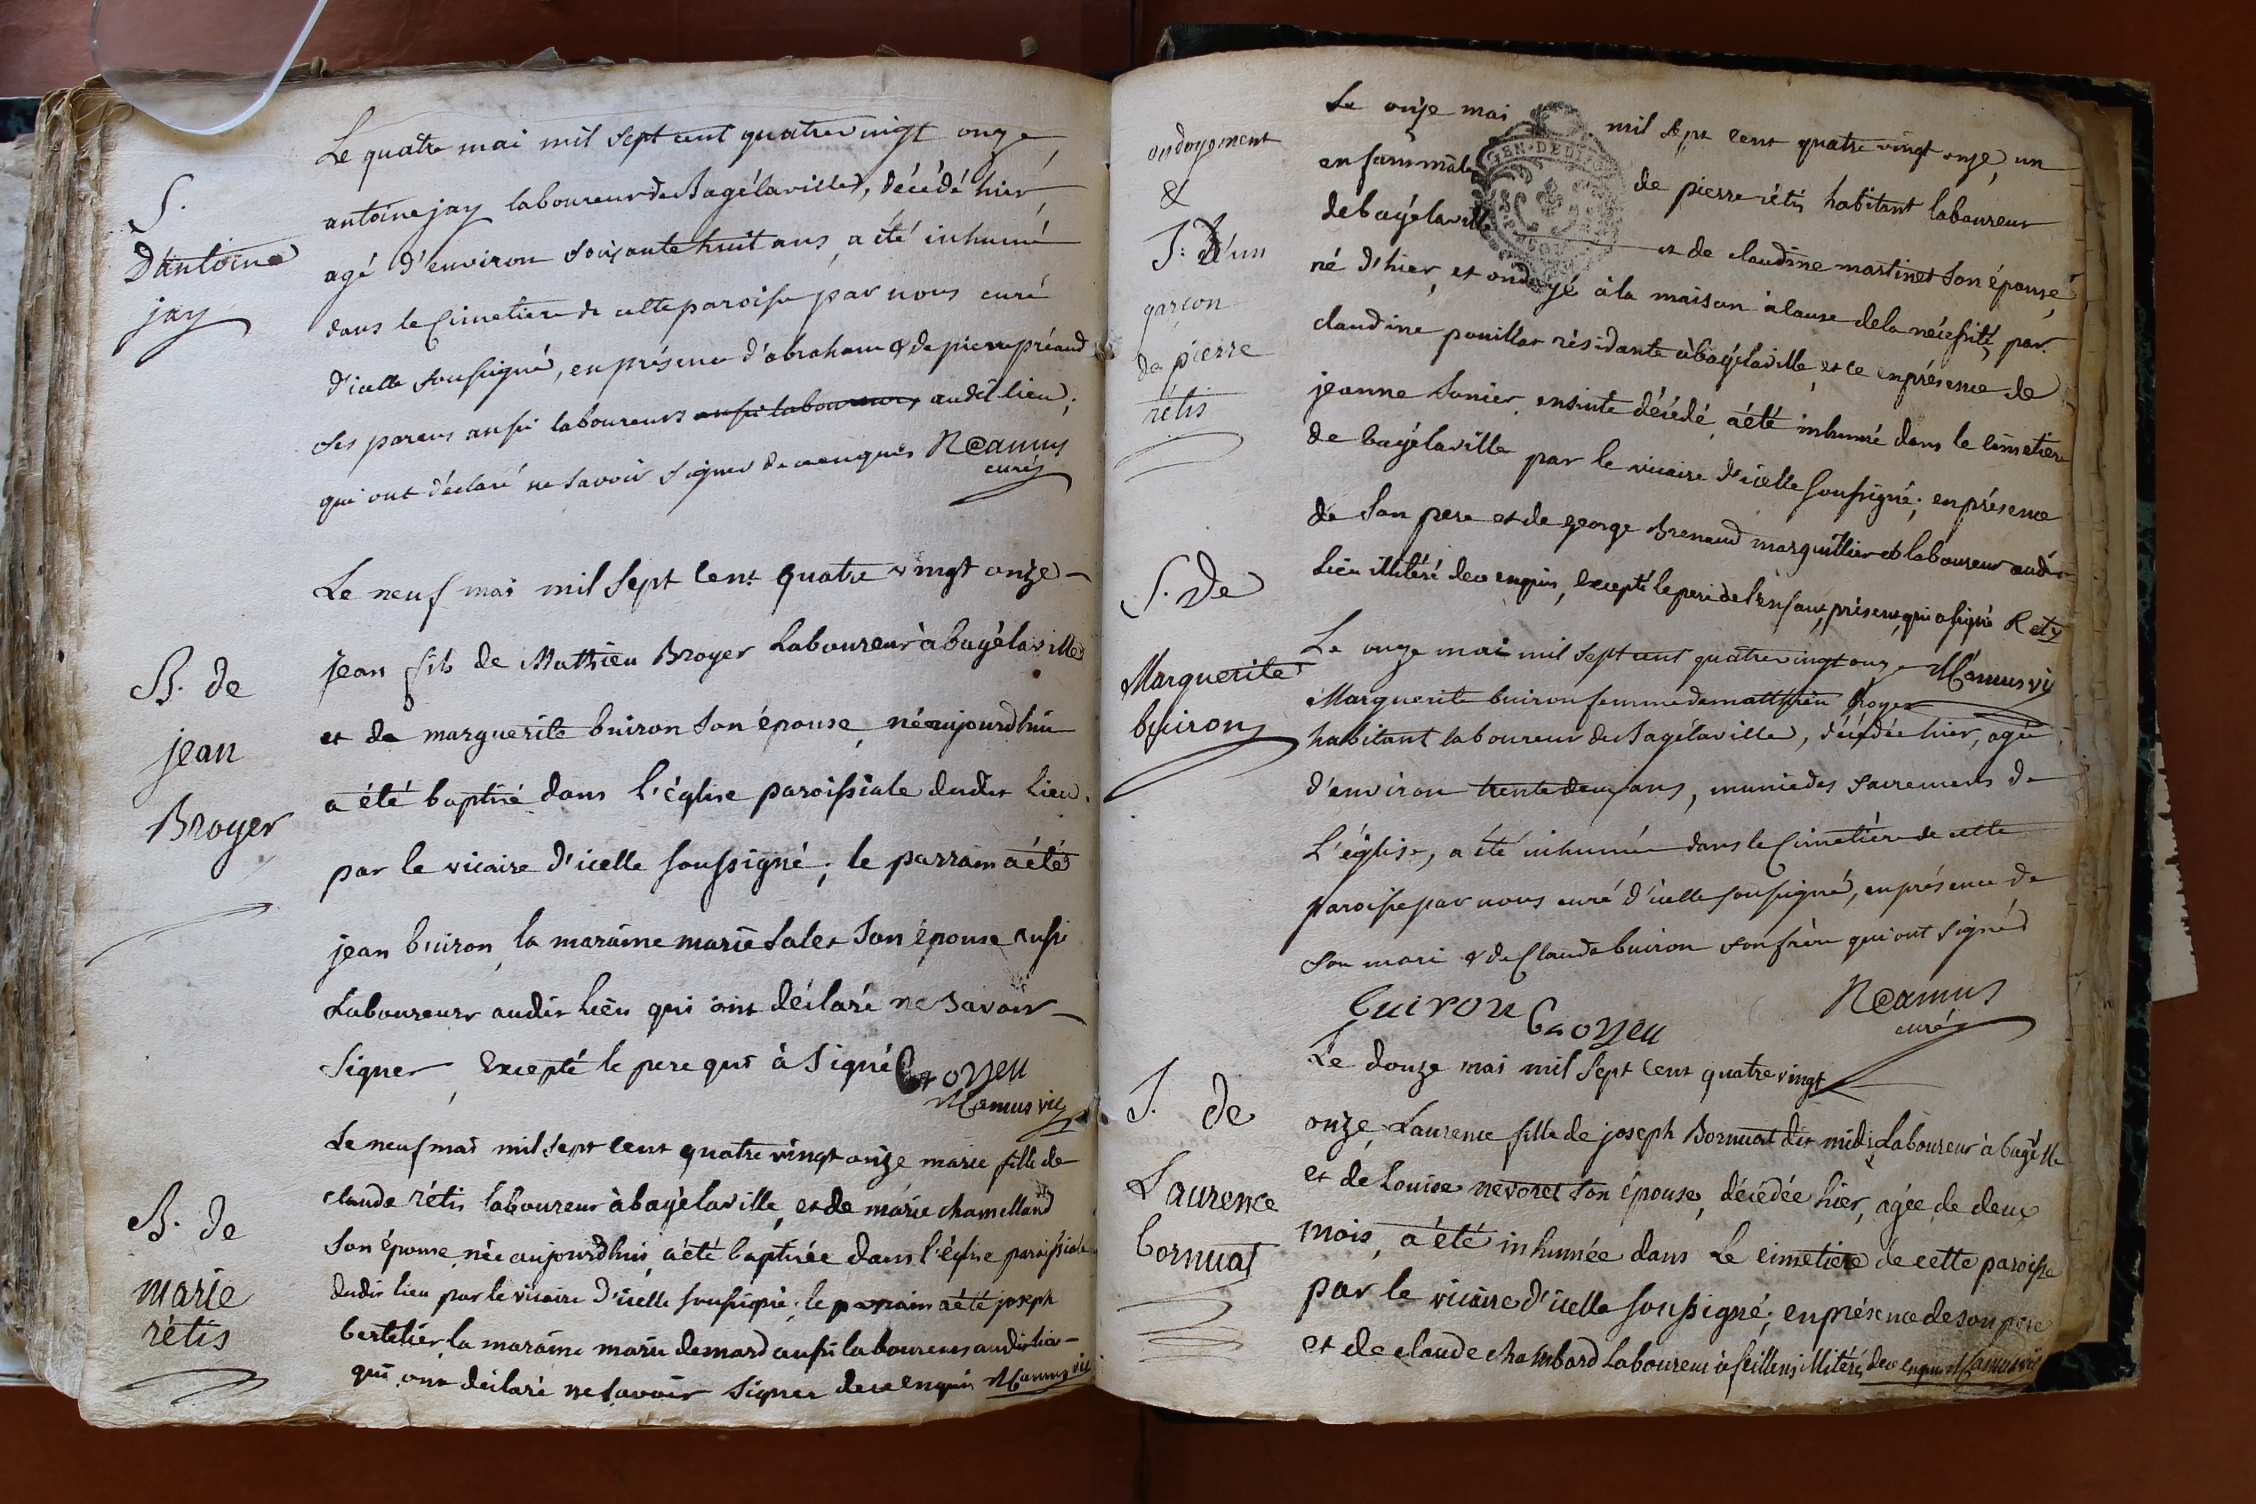 S.
D'antoine
jay
Le quatre mai mil sept cent quatrevingt onze
antoine jay laboureur de Bagélaville, décédé hier
agé d'environ soixante huit ans, a été inhumé
dans le Cimetiere de cette paroisse par nous curé
d'icelle soussigné, en présence d'abraham & de pierre préaud
ses parens aussi laboureurs aussi laboureurs audit lieu,
qui ont déclaré ne savoir signer de ce enquis Mcamus
curé
B. de
jean
Broyer
Le neuf mai mil sept cent quatre vingt onze
jean fils de Mathieu Broyer Laboureur à bagélaville
et de marguerite buiron son épouse, né aujourdhui
a été baptisé dans l'église paroissiale dudit lieu
par le vicaire d'icelle soussigné; le parrain a été
jean buiron, la maraine marie son épouse aussi
Laboureurs audit lieu qui ont déclaré ne savoir
signer, Excepté le pere qui à signé Broyeu
Mcamus vic
B. de
marie
rétis
Le neuf mai mil sept cent quatre vingt onze marie fille de
claude rétis laboureur à bagélaville, et de marie chamelland
son épouse, née aujourdhui, a été baptisée dans l'église paroissiale
dudit lieu par le vicaire d'icelle soussigné; le parrain a été joseph
bertelier, la maraine marie demard aussi laboureurs audit lieu
qui ont déclaré ne savoir signer de ce enquis Mcamus vic
ondoyement
&
S: d'un
garçon
de pierre
rétis
Le onze mai mil sept cent quatre vingt onze, un
enfant mâle de pierre rétis habitant laboureur
de bagélaville et de claudine martinet son épouse,
né d'hier, et ondoyé à la maison à cause de la nécessité, par
claudine pouillat résidante à bagélaville, et ce en présence de
jeanne Sonier, ensuite décédé, a été inhumé dans le cimetiere
de bagélaville par le vicaire d'icelle soussigné; en présence
de son pere et de george Brenaud marguillier et laboureur audit
lieu illitéré de ce enquis, excepté le pere de l'enfant, présent, qui a signé Rety
Mcamus vic
S. de
Marguerite
buiron
Le onze mai mil sept cent quatrevingt onze
Marguerite buiron femme de matthieu broyer
habitant laboureur de Bagélaville, décédée hier, agée
d'environ trente deux ans, munie des sacrements de
L'église, a été inhumée dans le Cimetière de cette
paroisse par nous curé d'icelle soussigné, en présence de
son mari & de Claude buiron son frère qui ont signé
buiron Broyeu
Mcamus
curé
S. de
Laurence
bornuat
Le douze mai mil sept cent quatre vingt
onze, Laurence fille de joseph Bornuat dit midi Laboureur à bagé lle
et de Louise nevoret son épouse, décédée hier, agée de deux
mois, a été inhumée dans Le cimetiere de cette paroisse
par le vicaire d'icelle soussigné; en présence de son pere
et de claude chambard Laboureur à feillens illitérés de ce enquis Mcamus vic